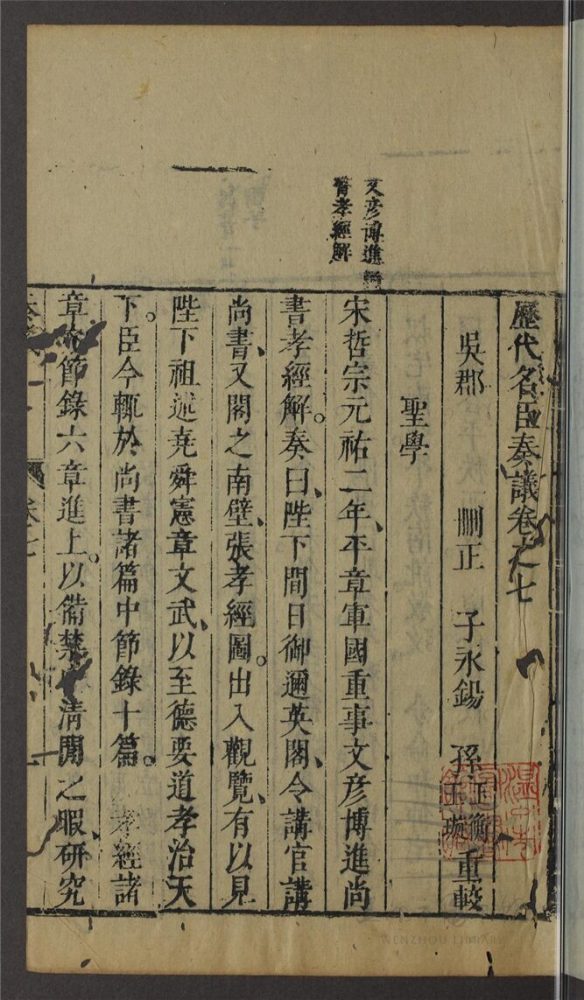 歷代名臣奏議卷之七
吳郡 刪正 子永錫 孫玉衡玉璇重較
聖學
文彥博進尚
書孝經解
宋哲宗元祐二年平章軍國重事文彥博進尚
書孝經解。奏曰、陛下間日御邇英閣、令講官講
尚書、又閣之南壁、張孝經圖。出入觀覽、有以見
陛下祖述堯舜憲章文武、以至德要道孝治天
下。臣今輒於尚書諸篇中節錄十篇。孝經諸
章內節錄六章進上。以備禁中清閒之暇研究
卷七